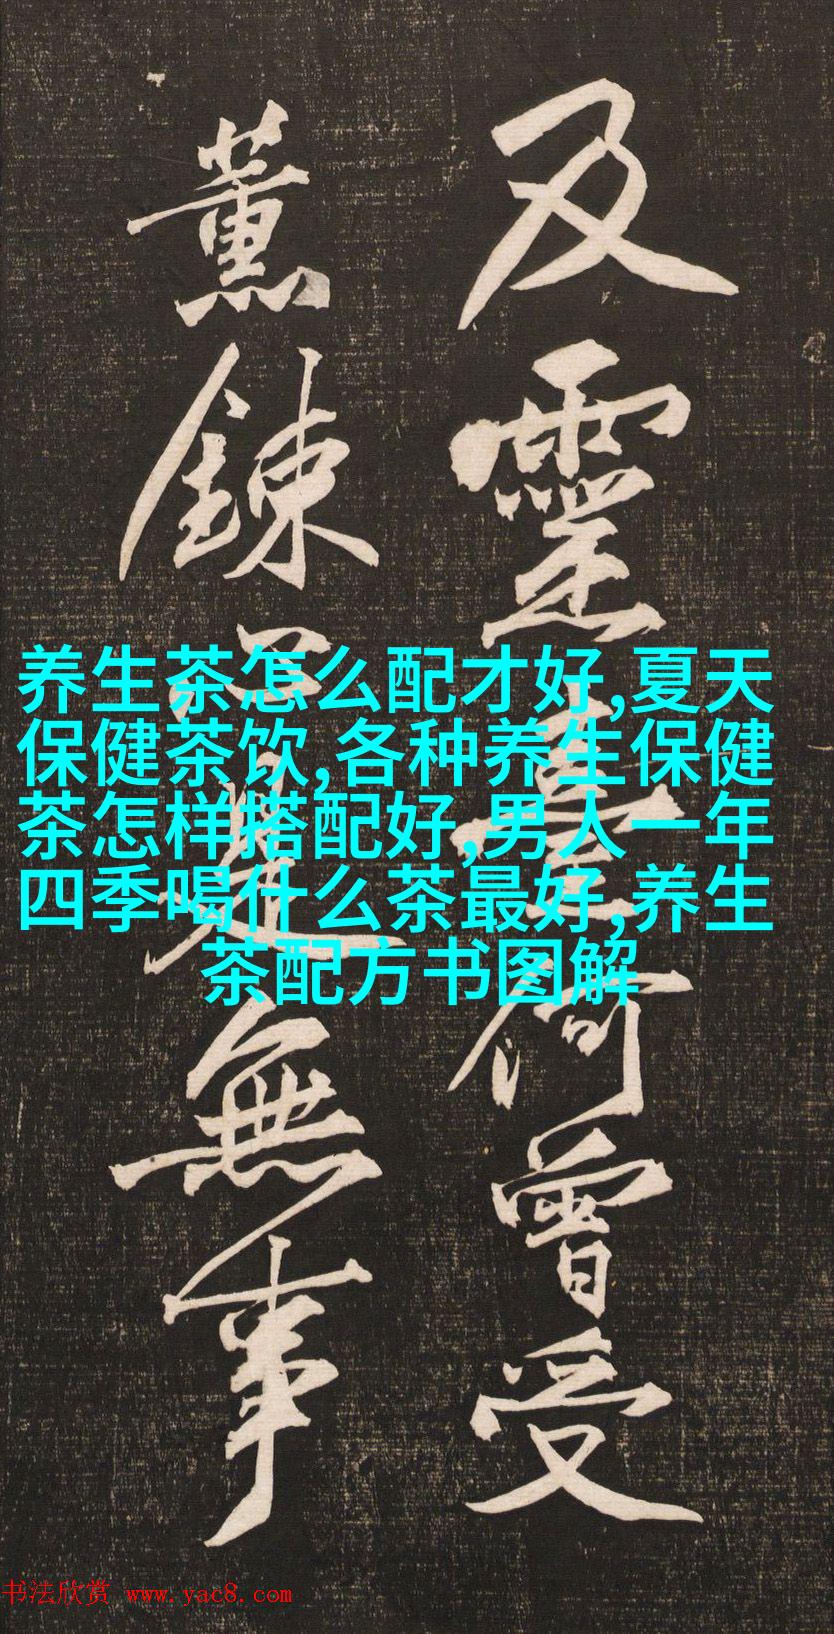 及靈臺何曾受
薰鍊是無事
养生茶怎么配才好,夏天
保健茶饮,各种养生保健
茶怎样搭配好,男人一年
四季喝什么茶最好,养生
茶配方书图解
书法欣赏 www.yac8.com